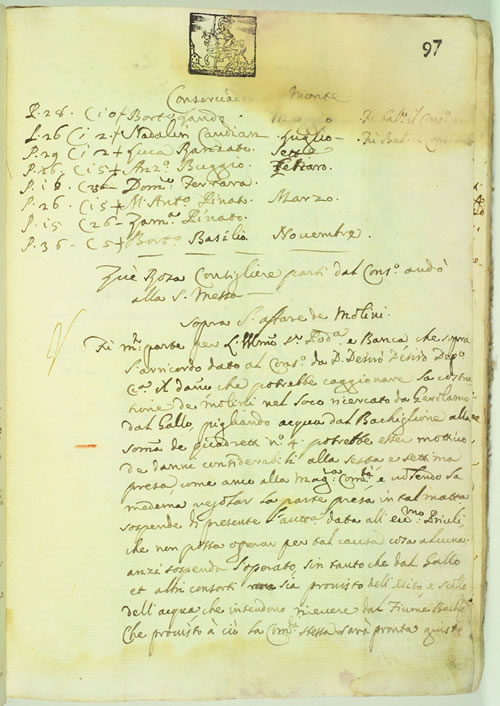 97
Conserviam Monte
P. 28. C 10 + Bort
L. 26 C i 2 + Nadalin Candian Luglio
P. 29 C i 2 + Luca Ranzato Sett.e
P. 26. C i 5 + Anz.o Buggio Febraro.
P. i 8 Dom.o Ferrara
P. 26. C i 5 + M. Ant.o Pinato Marzo.
P. i5 C 26 - Zam.a Pinato.
P. 36. C i 5 + Bort.o Basilio Novembre.
Zuè Roza Consigliere partì dal Cons.o andò
alla S. Messa
Sopra l'affare de Molini.
Fù m.a parte per L'Illmo Sr. Pod.a e Banca che sopra
l'arricordo dato al Cons.o da D.
il dano che potrebbe caggionare la costru
tione de Molini nel loco ricercato da Gerolamo
dal Gallo, pigliando acqua dal Bachiglione alla
soma de quadretti n.o 4. potrebbe esser mottivo
de danni considerabili alla sesta e settima
presa, come anco alla Mag.ca Com.tà e volendo la
medema regolar la parte presa in tal matta
sospende di presente l'autta data all' Priuli,
che non possa operar per tal causa cosa alcuna
anzi sospenda l'operato, sin tanto che dal Gallo
et altri consorti sia provisto dell'Esito, e scolo
dell'acqua che intendono ricevere dal Fiume
Che provisto à ciò la Com.tà stessa sarà pronta